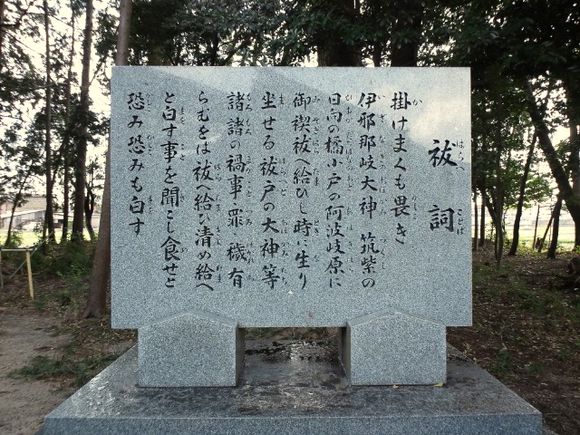 祓詞
掛けまくも畏き
伊邪那岐大神 筑紫の
日向の橘小戸の阿波岐原に
御禊祓へ給ひし時に生り
坐せる祓戸の大神等
諸諸の禍事 罪 穢有
らむをは祓へ給ひ清め給へ
と白す事を聞こし食せと
恐み恐みも白す